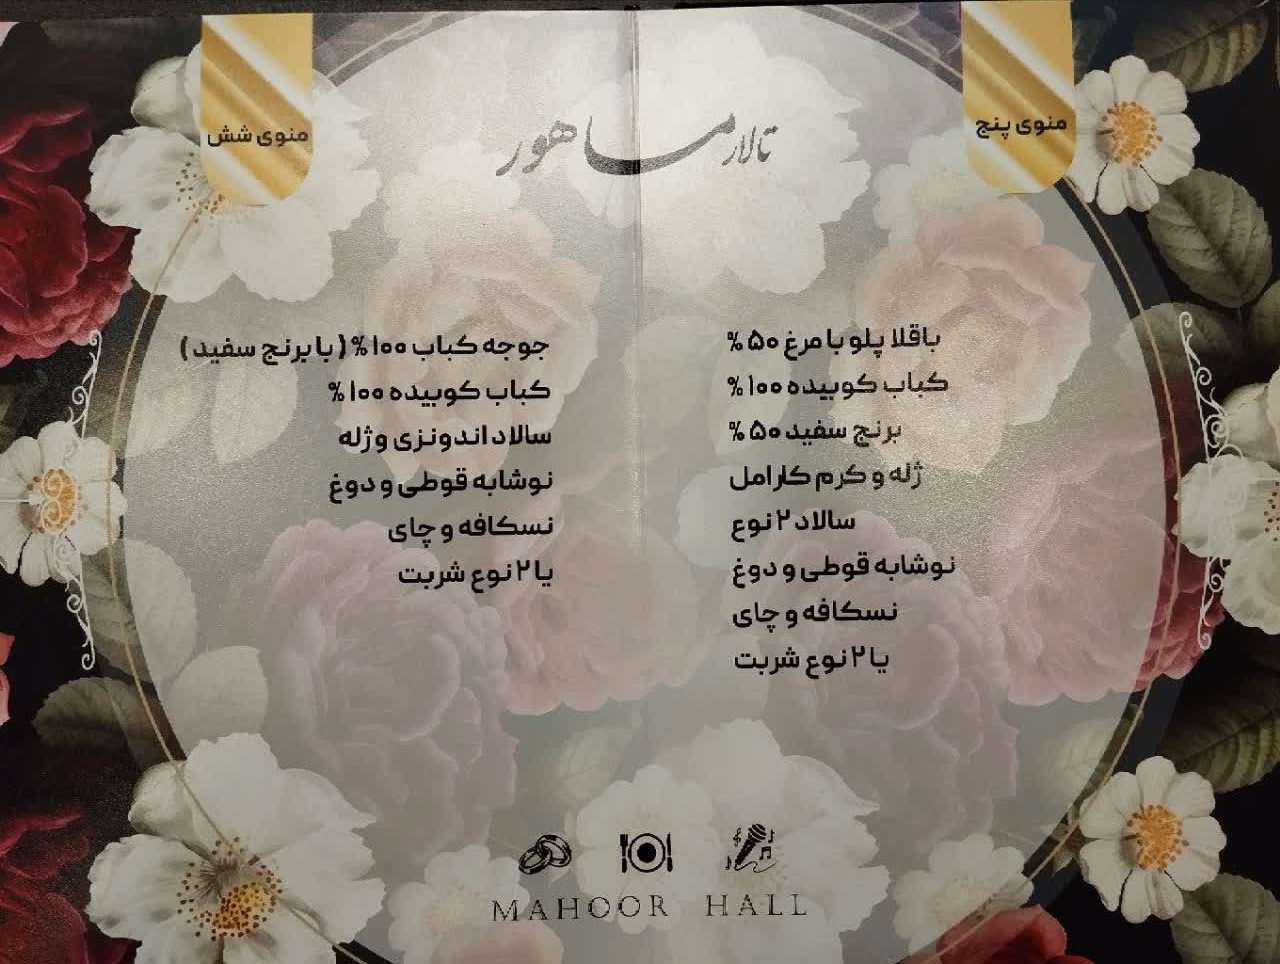 تالار ماهور
منوی پنج
باقلا پلو با مرغ ۵۰%
کباب کوبیده ۱۰۰%
برنج سفید ۵۰%
ژله و کرم کارامل
سالاد ۲ نوع
نوشابه قوطی و دوغ
نسکافه و چای
یا ۲ نوع شربت
منوی شش
جوجه کباب ۱۰۰% ( با برنج سفید )
کباب کوبیده ۱۰۰%
سالاد اندونزی و ژله
نوشابه قوطی و دوغ
نسکافه و چای
یا ۲ نوع شربت
MAHOOR HALL